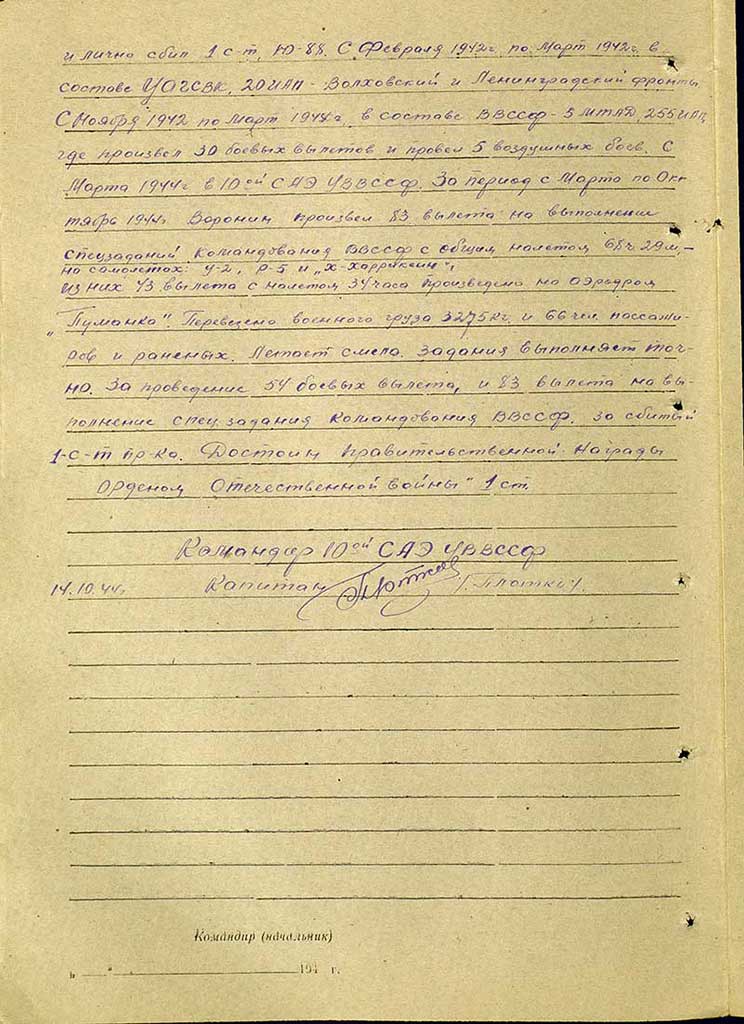 и лично сбил 1 с-т, Ю-88. С Февраля 1942г. по Март 1942г. в
составе 20 ИАП - Волховский и Ленинградский фронты
С Ноября 1942 по Март 1944г. в составе ВВССФ - 5 МТАД, 255 ИАП,
где произвел 30 боевых вылетов и провел 5 воздушных боев. С
Марта 1944г в 10ой САЭ УВВССФ. За период с Марта по Ок-
тябрь 1944г Воронин произвел 83 вылета на выполнение
спецзаданий Командования ВВССФ с общим налетом 68ч 29м, -
на самолетах: У-2, Р-5 и „Х-Харрикейн",
из них 43 вылета с налетом 34 часа произведено на аэродром
„Пуманки". Перевезено военного груза 3275 кг. и 66 чел. пассажи-
ров и раненых. Летает смело. Задания выполняет точ-
но. За проведение 54 боевых вылета, и 83 вылета на вы-
полнение спец.задания Командования ВВССФ. за сбитый
1-с-т пр-ка. Достоин Правительственной Награды
Орденом Отечественной войны" 1 ст.
Командир 10ой САЭ УВВССФ
14.10.44г. Капитан Г. Плоткин
Командир (начальник)
" " 194 г.